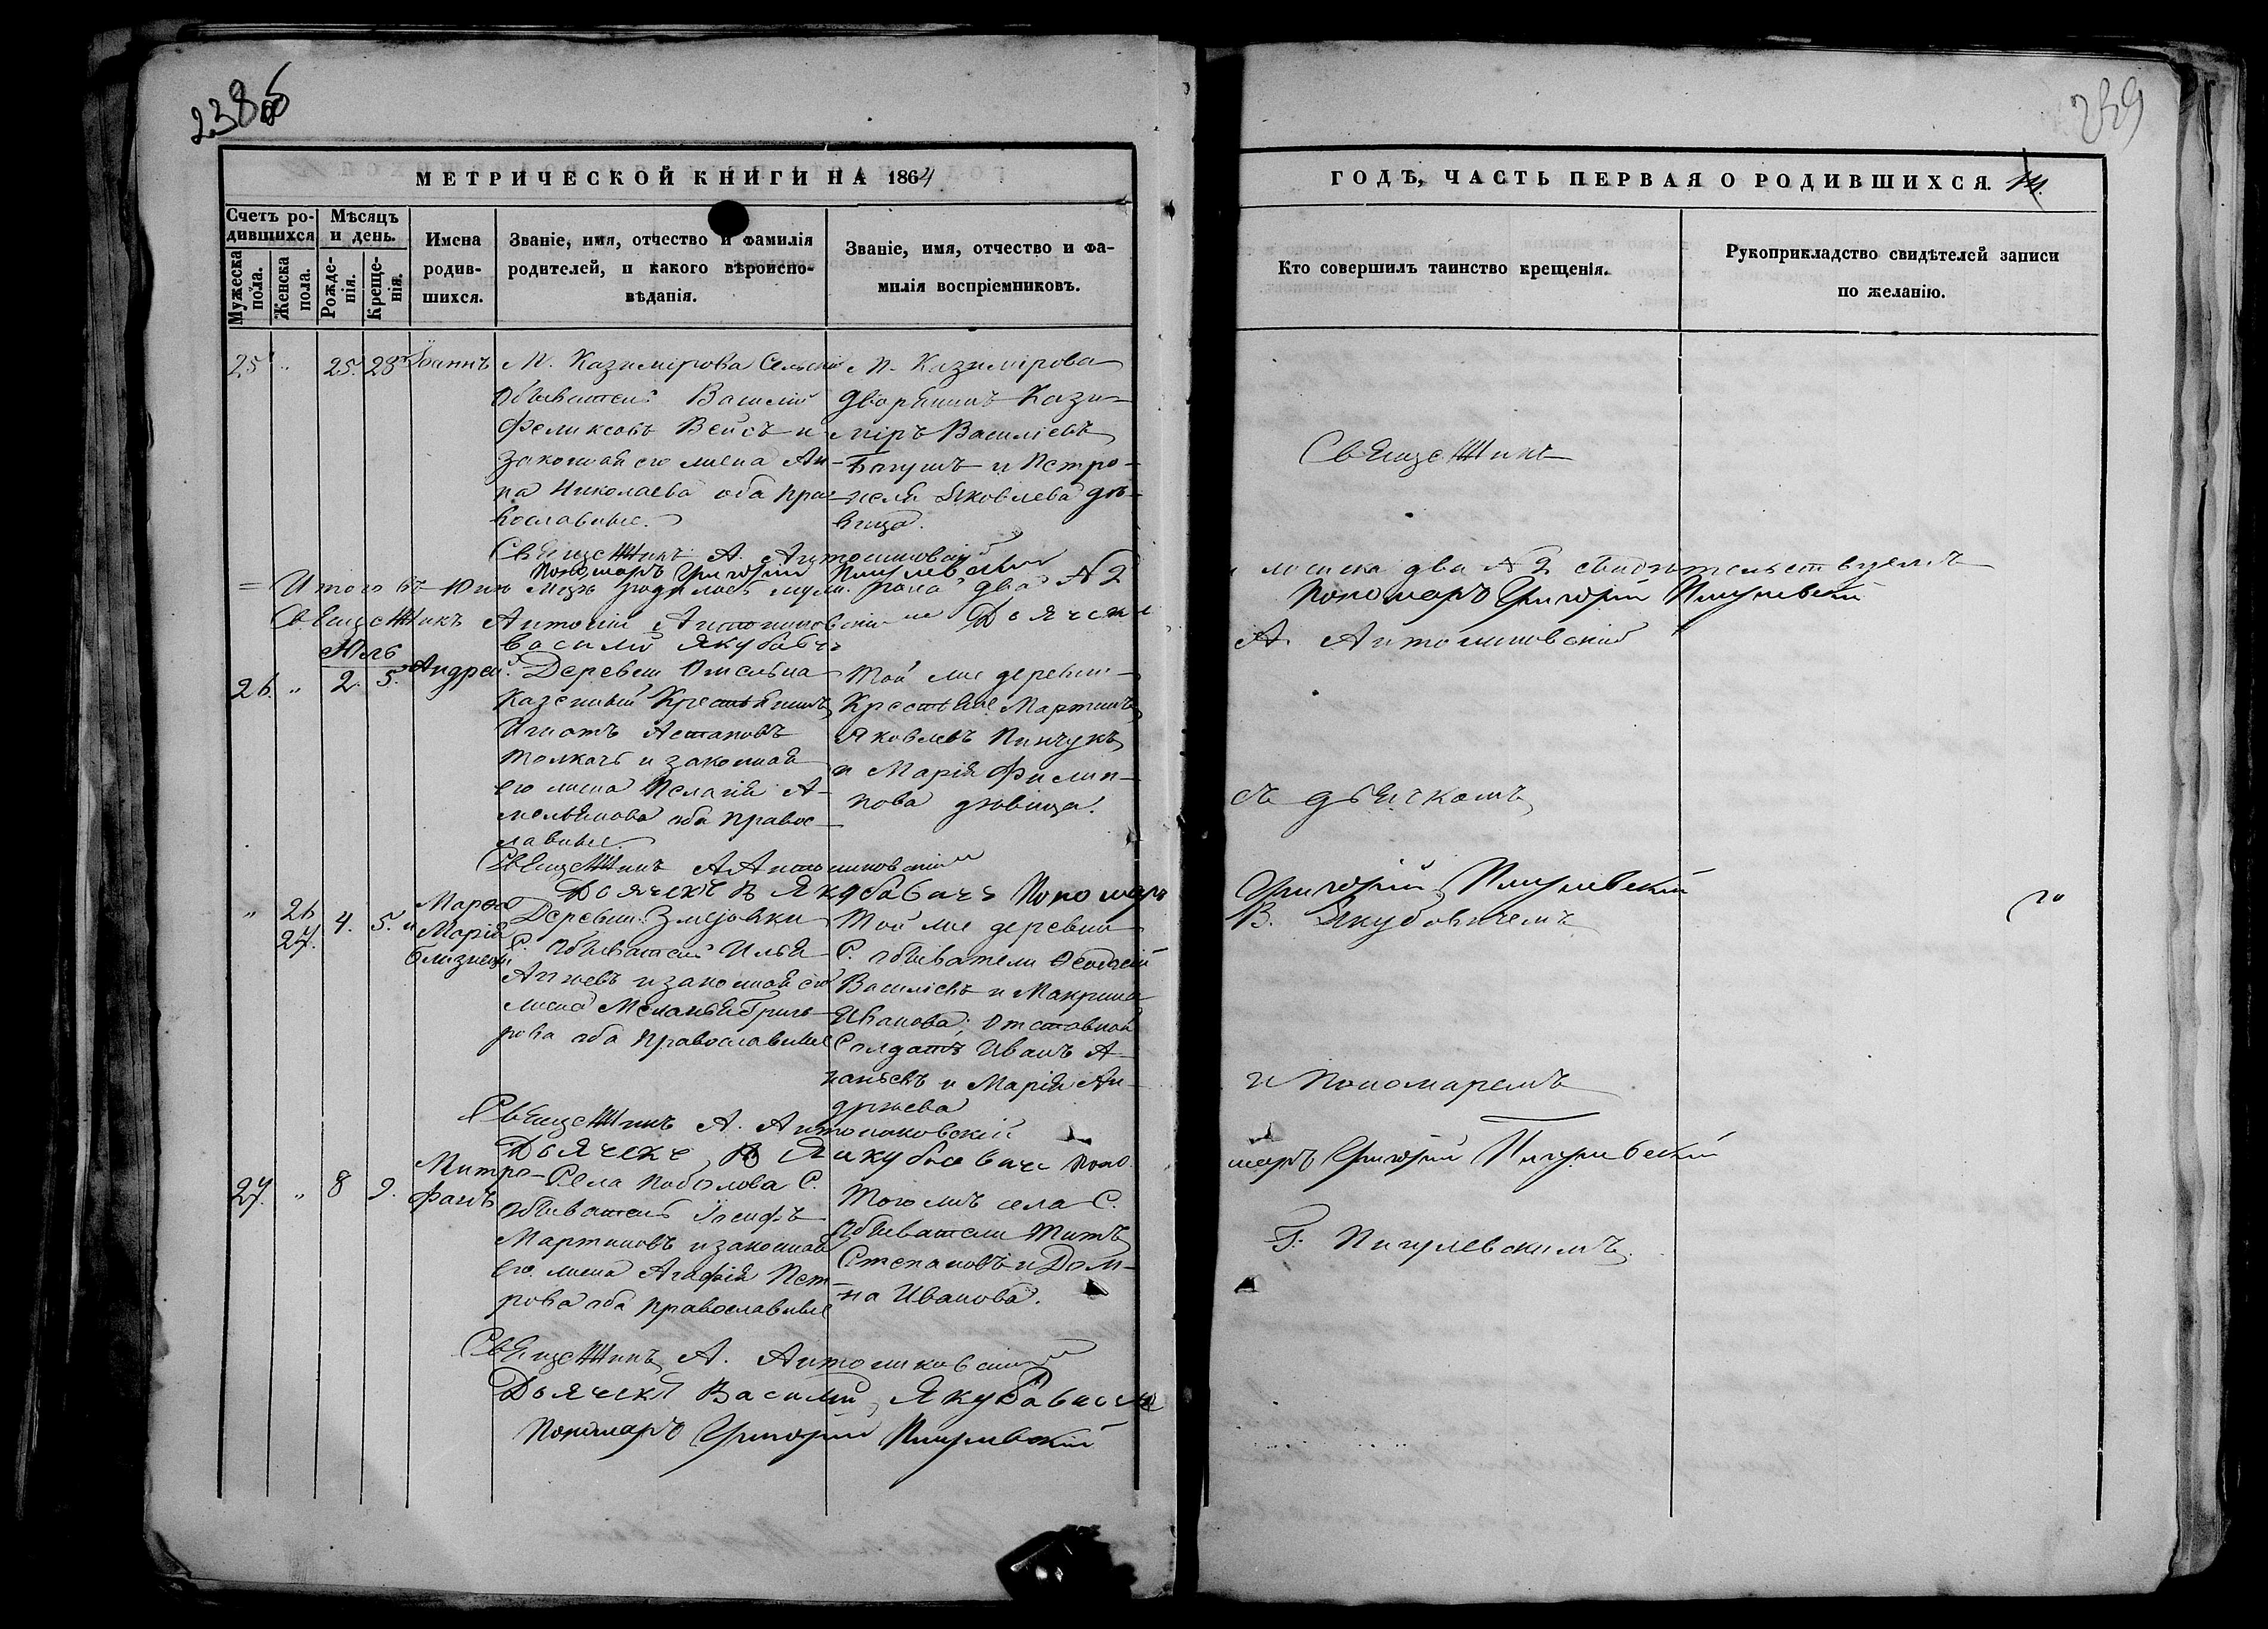 238об
239
МЕТРИЧЕСКОЙ КНИГИ НА 1864
Счетъ ро-
дившихся
Мужеска
пола.
Женска
пола.
Мѣсяцъ
и день.
Рожде-
нія.
Креще-
нія.
Имена
родив-
шихся.
Званіе, имя, отчество и фамилія
родителей, и какого вѣроиспо-
вѣданія.
Званіе, имя, отчество и фа-
милія воспріемниковъ.
25 " 25. 28 Іоаннъ
М. Казимірова Сельскій
Обыватель Василій
Феликсовъ Вейсъ и
законная его жена Ан-
на Николаева оба пра-
вославные.
М. Казимірова
дворянинъ Кази-
міръ Василіевъ
Богушъ и Петро-
неля Яковлева дѣ-
вица.
Священникъ А. Антониновскій
Пономарь Григорій Пигулевскій
Итого въ Юнѣ мцѣ родилось муж. пола два № 2
Священникъ Антоній Антониновскій Дьячекъ
Василій Якубовичъ
Юль
26. " 2. 5. Андрей.
Деревни Омельна
Казенный Крестьянинъ
Игнатъ Астаповъ
Толкачъ и законная
его жена Пелагія А-
мельянова оба правос-
лавные.
Той же деревни
Крестьяне Мартинъ
Яковлевъ Пинчукъ
и Марія Филип-
пова дѣвица.
Священникъ А Антониновскій
Дьячекъ В Якубовичъ Пономарь
" 26 27. 4. 5. Марѳа
и Марія
близнецы
Деревни Змеовки
С. Обыватель Илья
законная его
жена Меланья Григо-
рова оба православные
Той же деревни
С. обыватели Ѳеодосій
Василіевъ и Макрина
Иванова; Отставной
Солдатъ Иванъ А-
наньевъ и Марія Ан-
дреева
Священникъ А. Антониновскій
Дьячекъ В Якубовичъ Поно
27. " 8 9. Митро-
фанъ
Села Поболова С.
обыватель Іосифъ
Мартиновъ и законная
его жена Агафія Пет-
рова оба православные
Того жъ села С.
Обыватели Титъ
Степановъ и Дом-
на Иванова.
Священникъ А. Антониновскій
Дьячекъ Василій Якубовичъ
Пономарь Григорій Пигулевскій
ГОДѢ, ЧАСТЬ ПЕРВАЯ О РОДИВШИХСЯ.
Кто совершилъ таинство крещенія.
Рукоприкладство свидѣтелей записи
по желанію.
Священникъ
женска два № 2 свидѣтельствуемъ
Пономарь Григорій Пигулевскій
А. Антониновскій
съ дьячкомъ
Григорій Пигулевскій
В. Якубовичемъ
и Пономаремъ
марь Григорій Пигулевскій
Г. Пигулевскимъ.